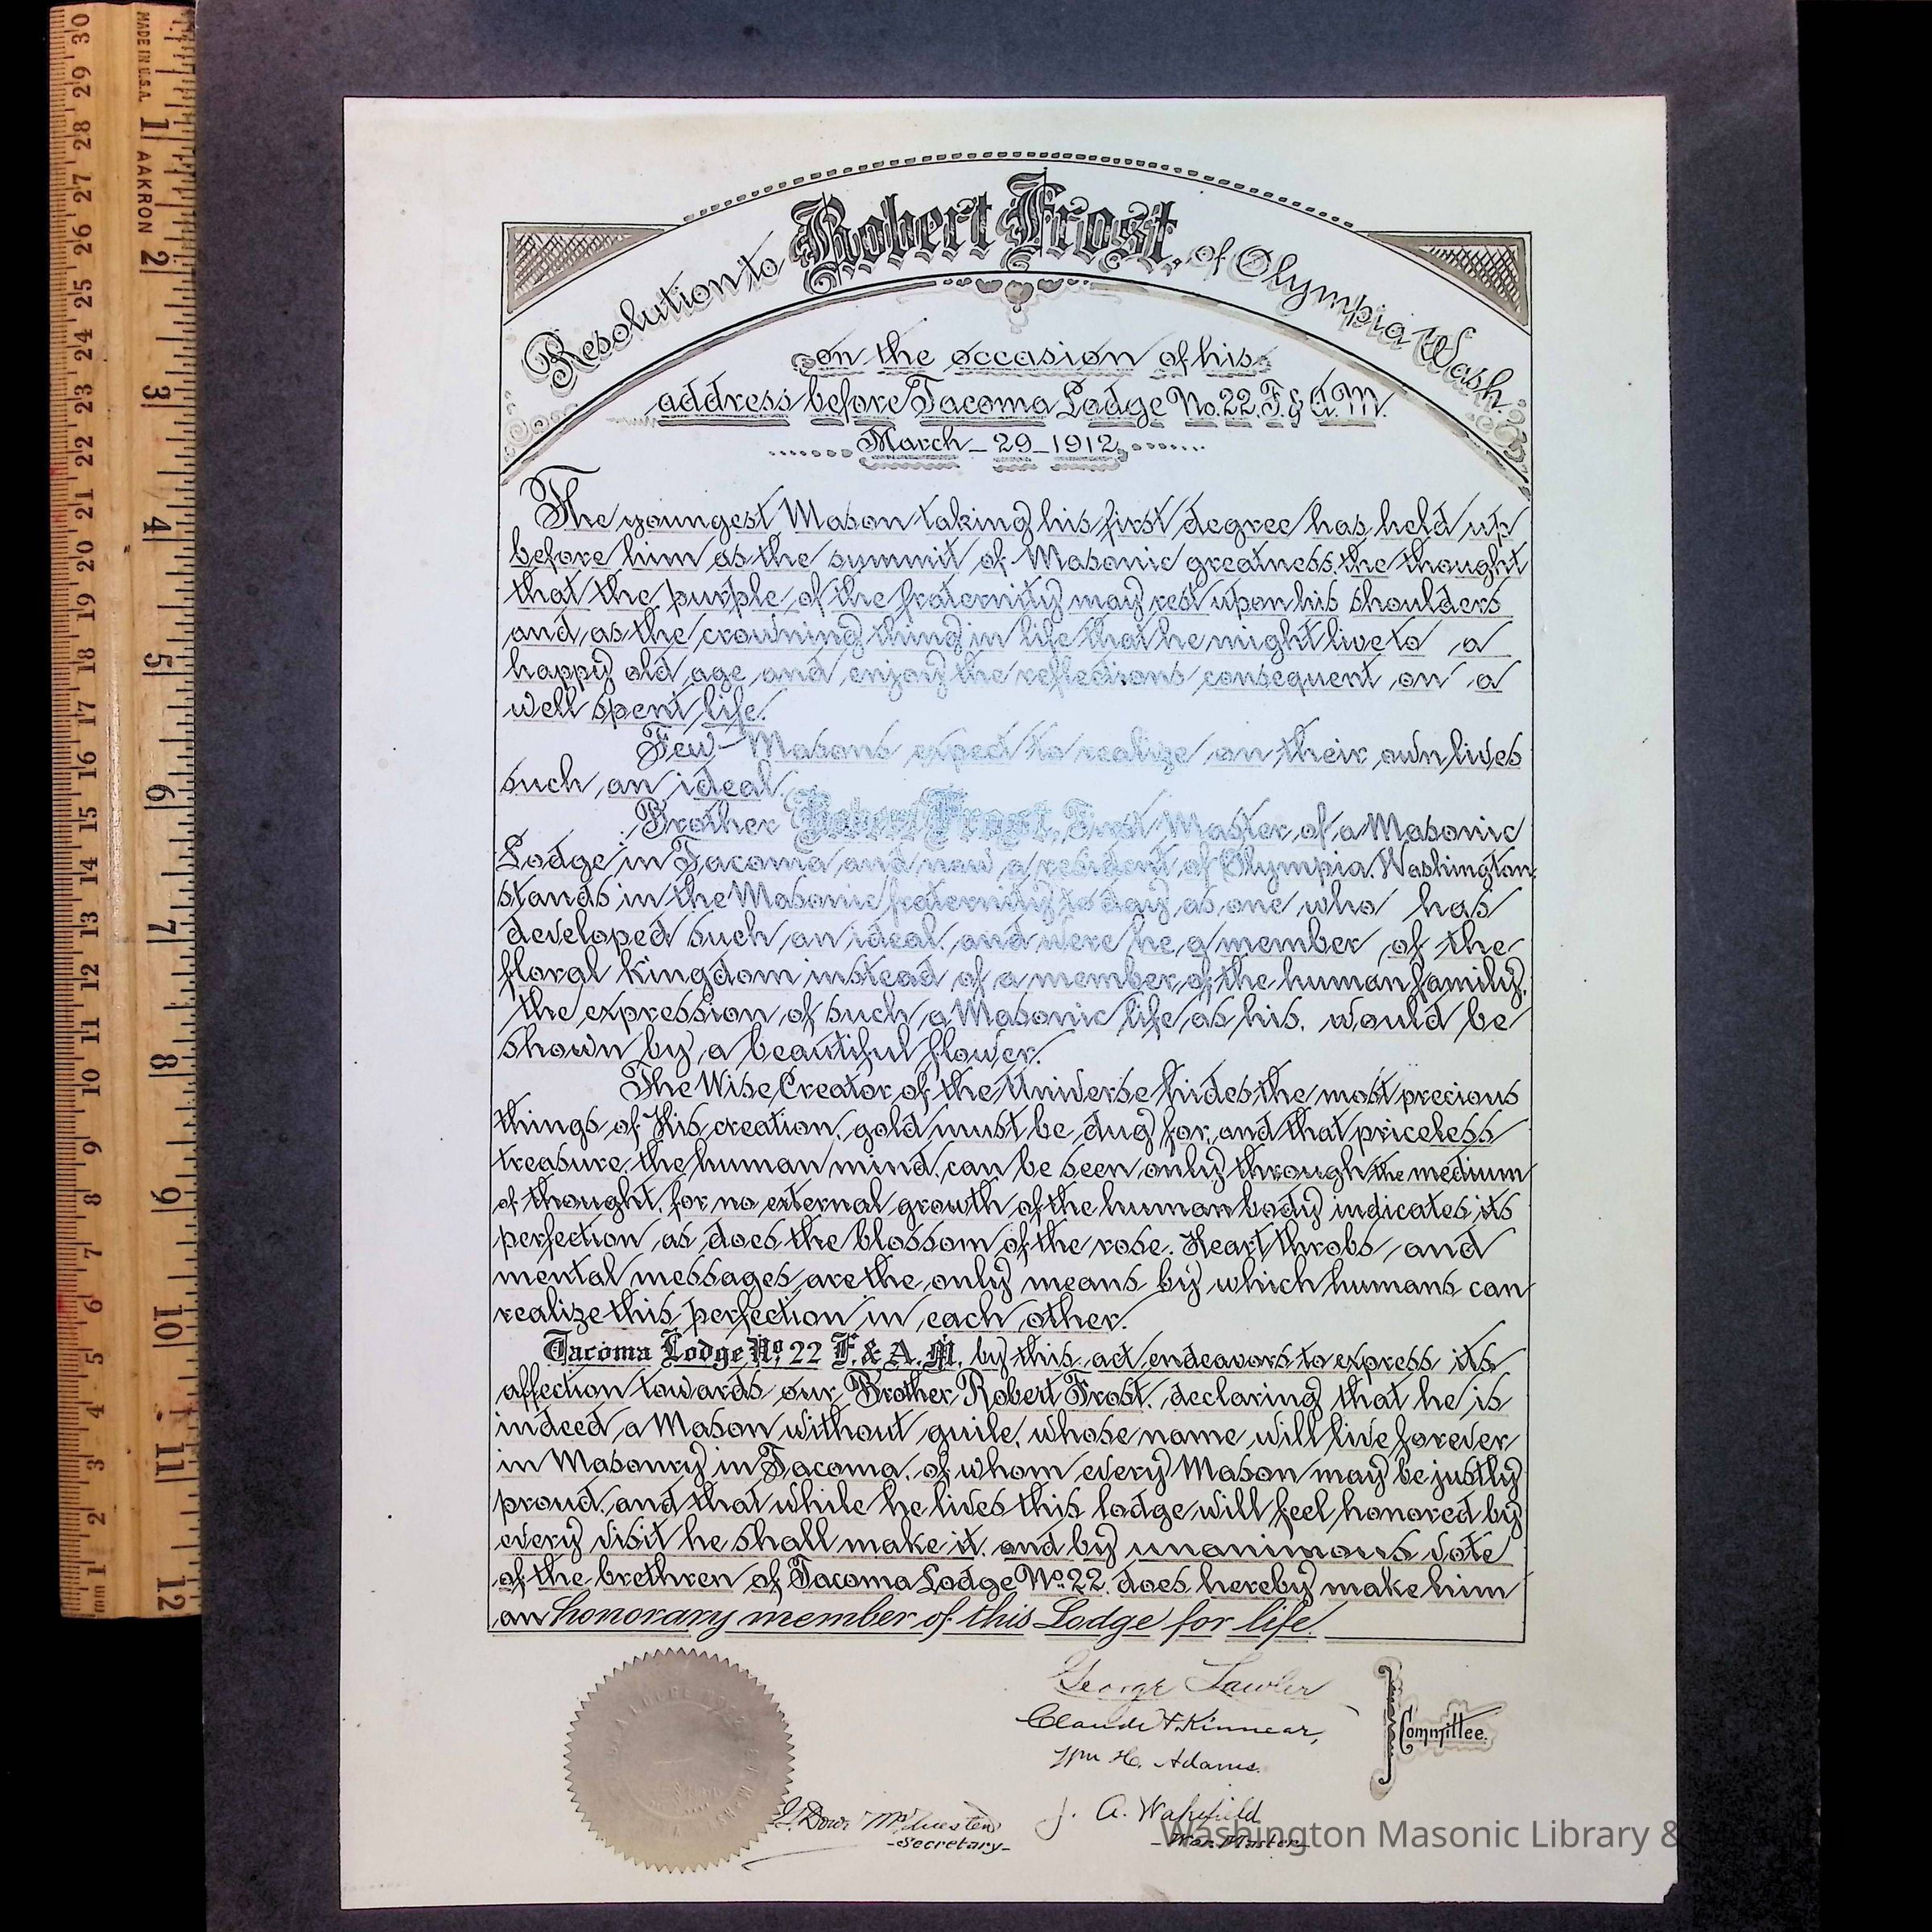 MADE IN U.S.A.
AAKRON
Resolution to Robert Frost, of Olympia Wash.
on the occasion of his
address before Tacoma Lodge No. 22. F. & A. M.
March - 29 - 1912
The youngest Mason taking his first degree has held up
before him as the summit of Masonic greatness, the thought
that the purple of the fraternity may rest upon his shoulders
and as the crowning thing in life that he might live to a
happy old age and enjoy the reflections consequent on a
well spent life.
Few Masons expect to realize on their own lives
such an ideal.
Brother Robert Frost, First Master of a Masonic
Lodge in Tacoma and now a resident of Olympia. Washington,
stands in the Masonic fraternity to day as one who has
developed such an ideal, and were he a member of the
floral kingdom instead of a member of the human family,
the expression of such a Masonic life as his, would be
shown by a beautiful flower.
The Wise Creator of the Universe hides the most precious
things of His creation, gold must be dug for, and that priceless
treasure, the human mind, can be seen only through the medium
of thought, for no external growth of the human body indicates its
perfection as does the blossom of the rose. Heart throbs and
mental messages are the only means by which humans can
realize this perfection in each other.
Tacoma Lodge No 22 F. & A. M. by this act endeavors to express its
affection towards our Brother Robert Frost, declaring that he is
indeed a Mason without guile, whose name will live forever
in Masonry in Tacoma, of whom every Mason may be justly
proud, and that while he lives this lodge will feel honored by
every visit he shall make it, and by unanimous vote
of the brethren of Tacoma Lodge No. 22, does hereby make him
an honorary member of this Lodge for life.
George Lawler
Claude F. Kinnear,
Wm H. Adams.
Committee.
J. A. Wakefield
-Wor. Master-
-Secretary-
Washington Masonic Library &